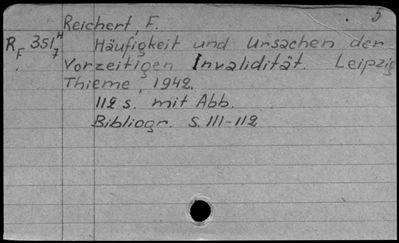 5
Reichert, F.
RF 351H/7 Häufigkeit und Ursachen der
Vorzeitigen Invalidität. Leipzig
Thieme, 1942.
112 s. mit Abb.
Bibliogr. S. 111-112